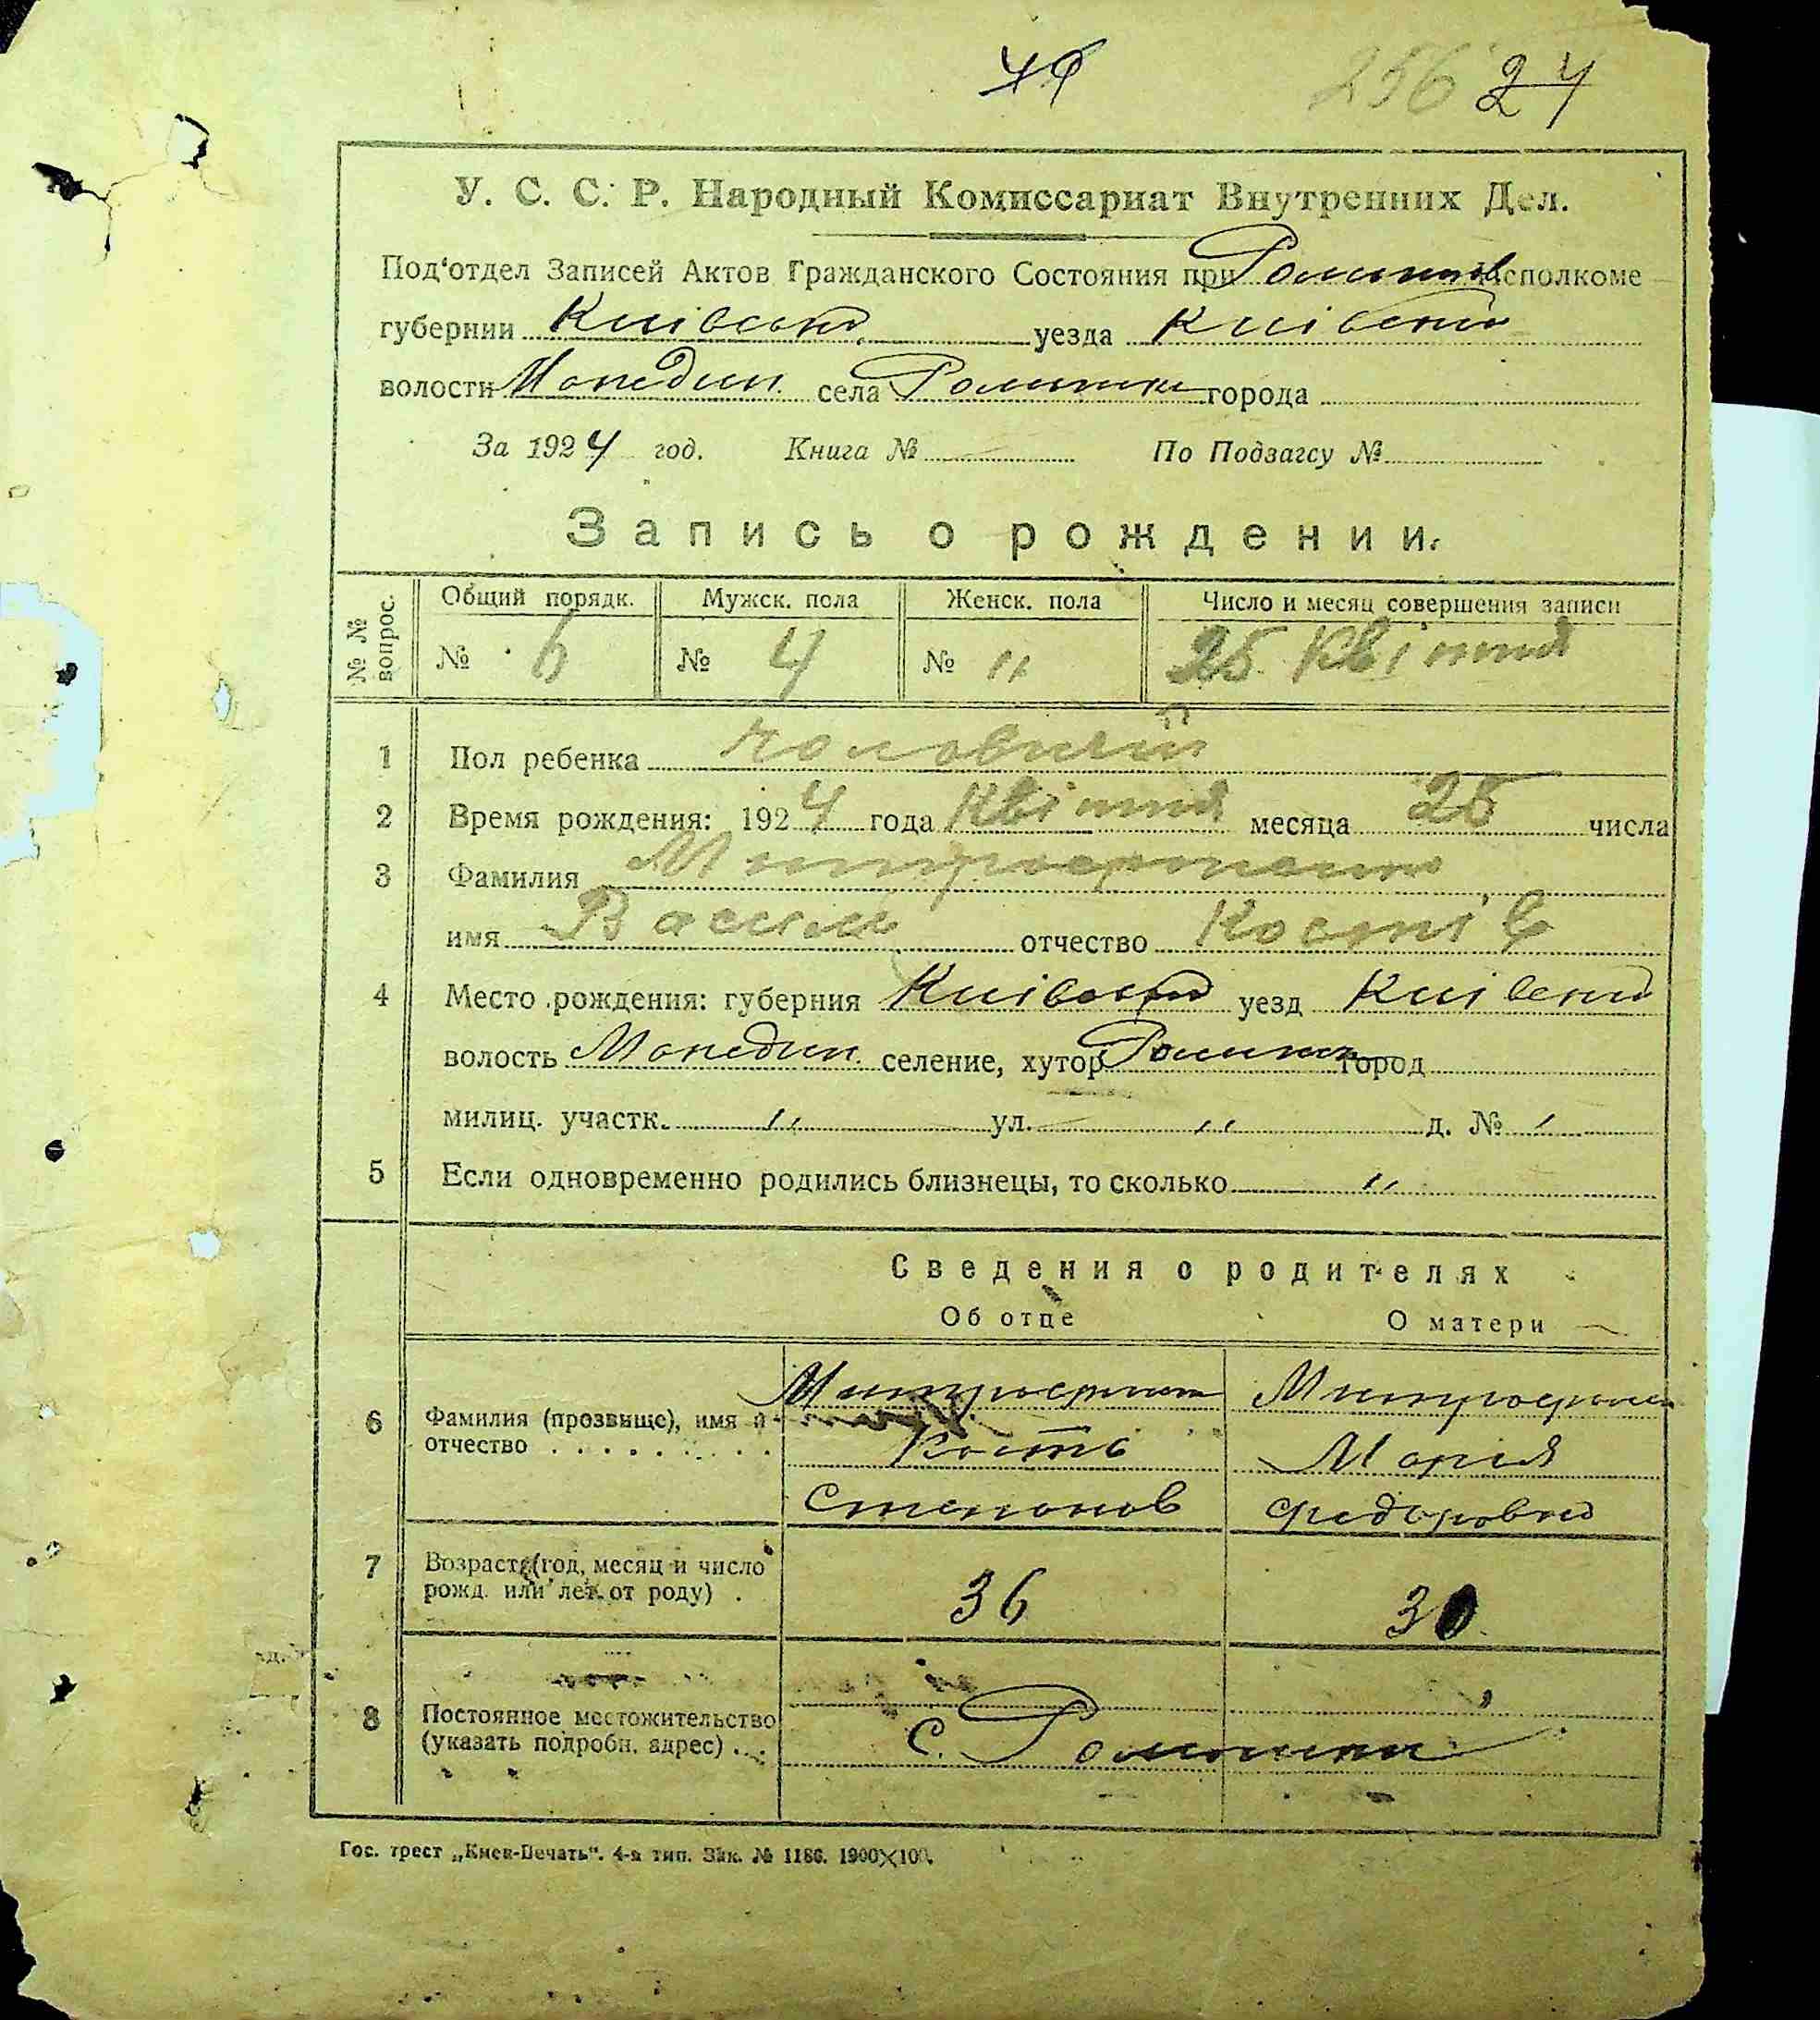 256 24
У. С. С. Р. Народный Комиссариат Внутренних Дел.
Под'отдел Записей Актов Гражданского Состояния при Исполкоме
губернии Київська уезда Київсько
волости Мопедин. села города
За 1924 год. Книга № По Подзагсу №
Запись о рождении.
№ № вопрос. Общий порядк. Мужск. пола Женск. пола Число и месяц совершения записи
№ 6 № 4 № " 25 Квітня
1 Пол ребенка чоловічий
2 Время рождения: 1924 года Квітня месяца 25 числа
3 Фамилия
имя Василь отчество Костів
4 Место рождения: губерния Київська уезд Київсько
волость Мопедин. селение, хутор город
милиц. участк. " ул. " д. №
5 Если одновременно родились близнецы, то сколько "
Сведения о родителях
Об отце О матери
6 Фамилия (прозвище), имя и
отчество Кость Мария
Степанов Федоровна
7 Возраст (год, месяц и число
рожд. или лет от роду) . 36 30
8 Постоянное местожительство
(указать подробн. адрес) . . . с.
Гос. трест „Киев-Печать". 4-я тип. Зак. № 1186. 1900×100.